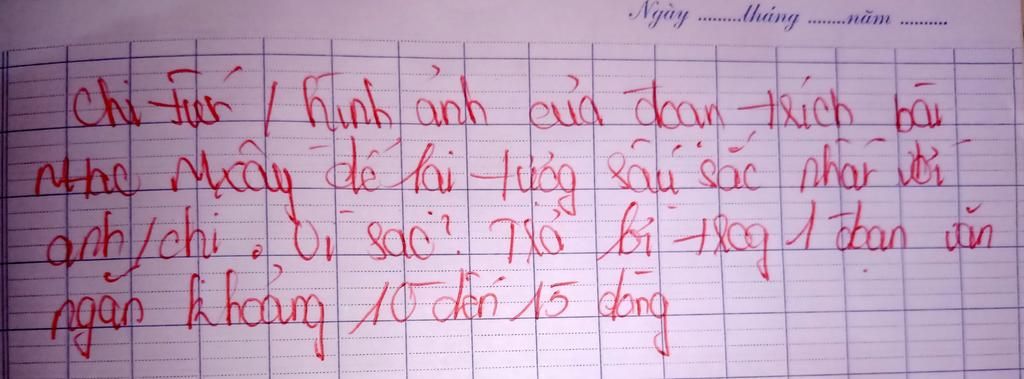 Ngày .........tháng ........năm ...........
Chi tiết / hình ảnh của đoan trích bài
nhạc Mxây để lại tượg sâu sắc nhất với
anh/chi. Vì sao? Trả lời trog 1 đoan văn
ngắn khoảng 10 đến 15 dòng